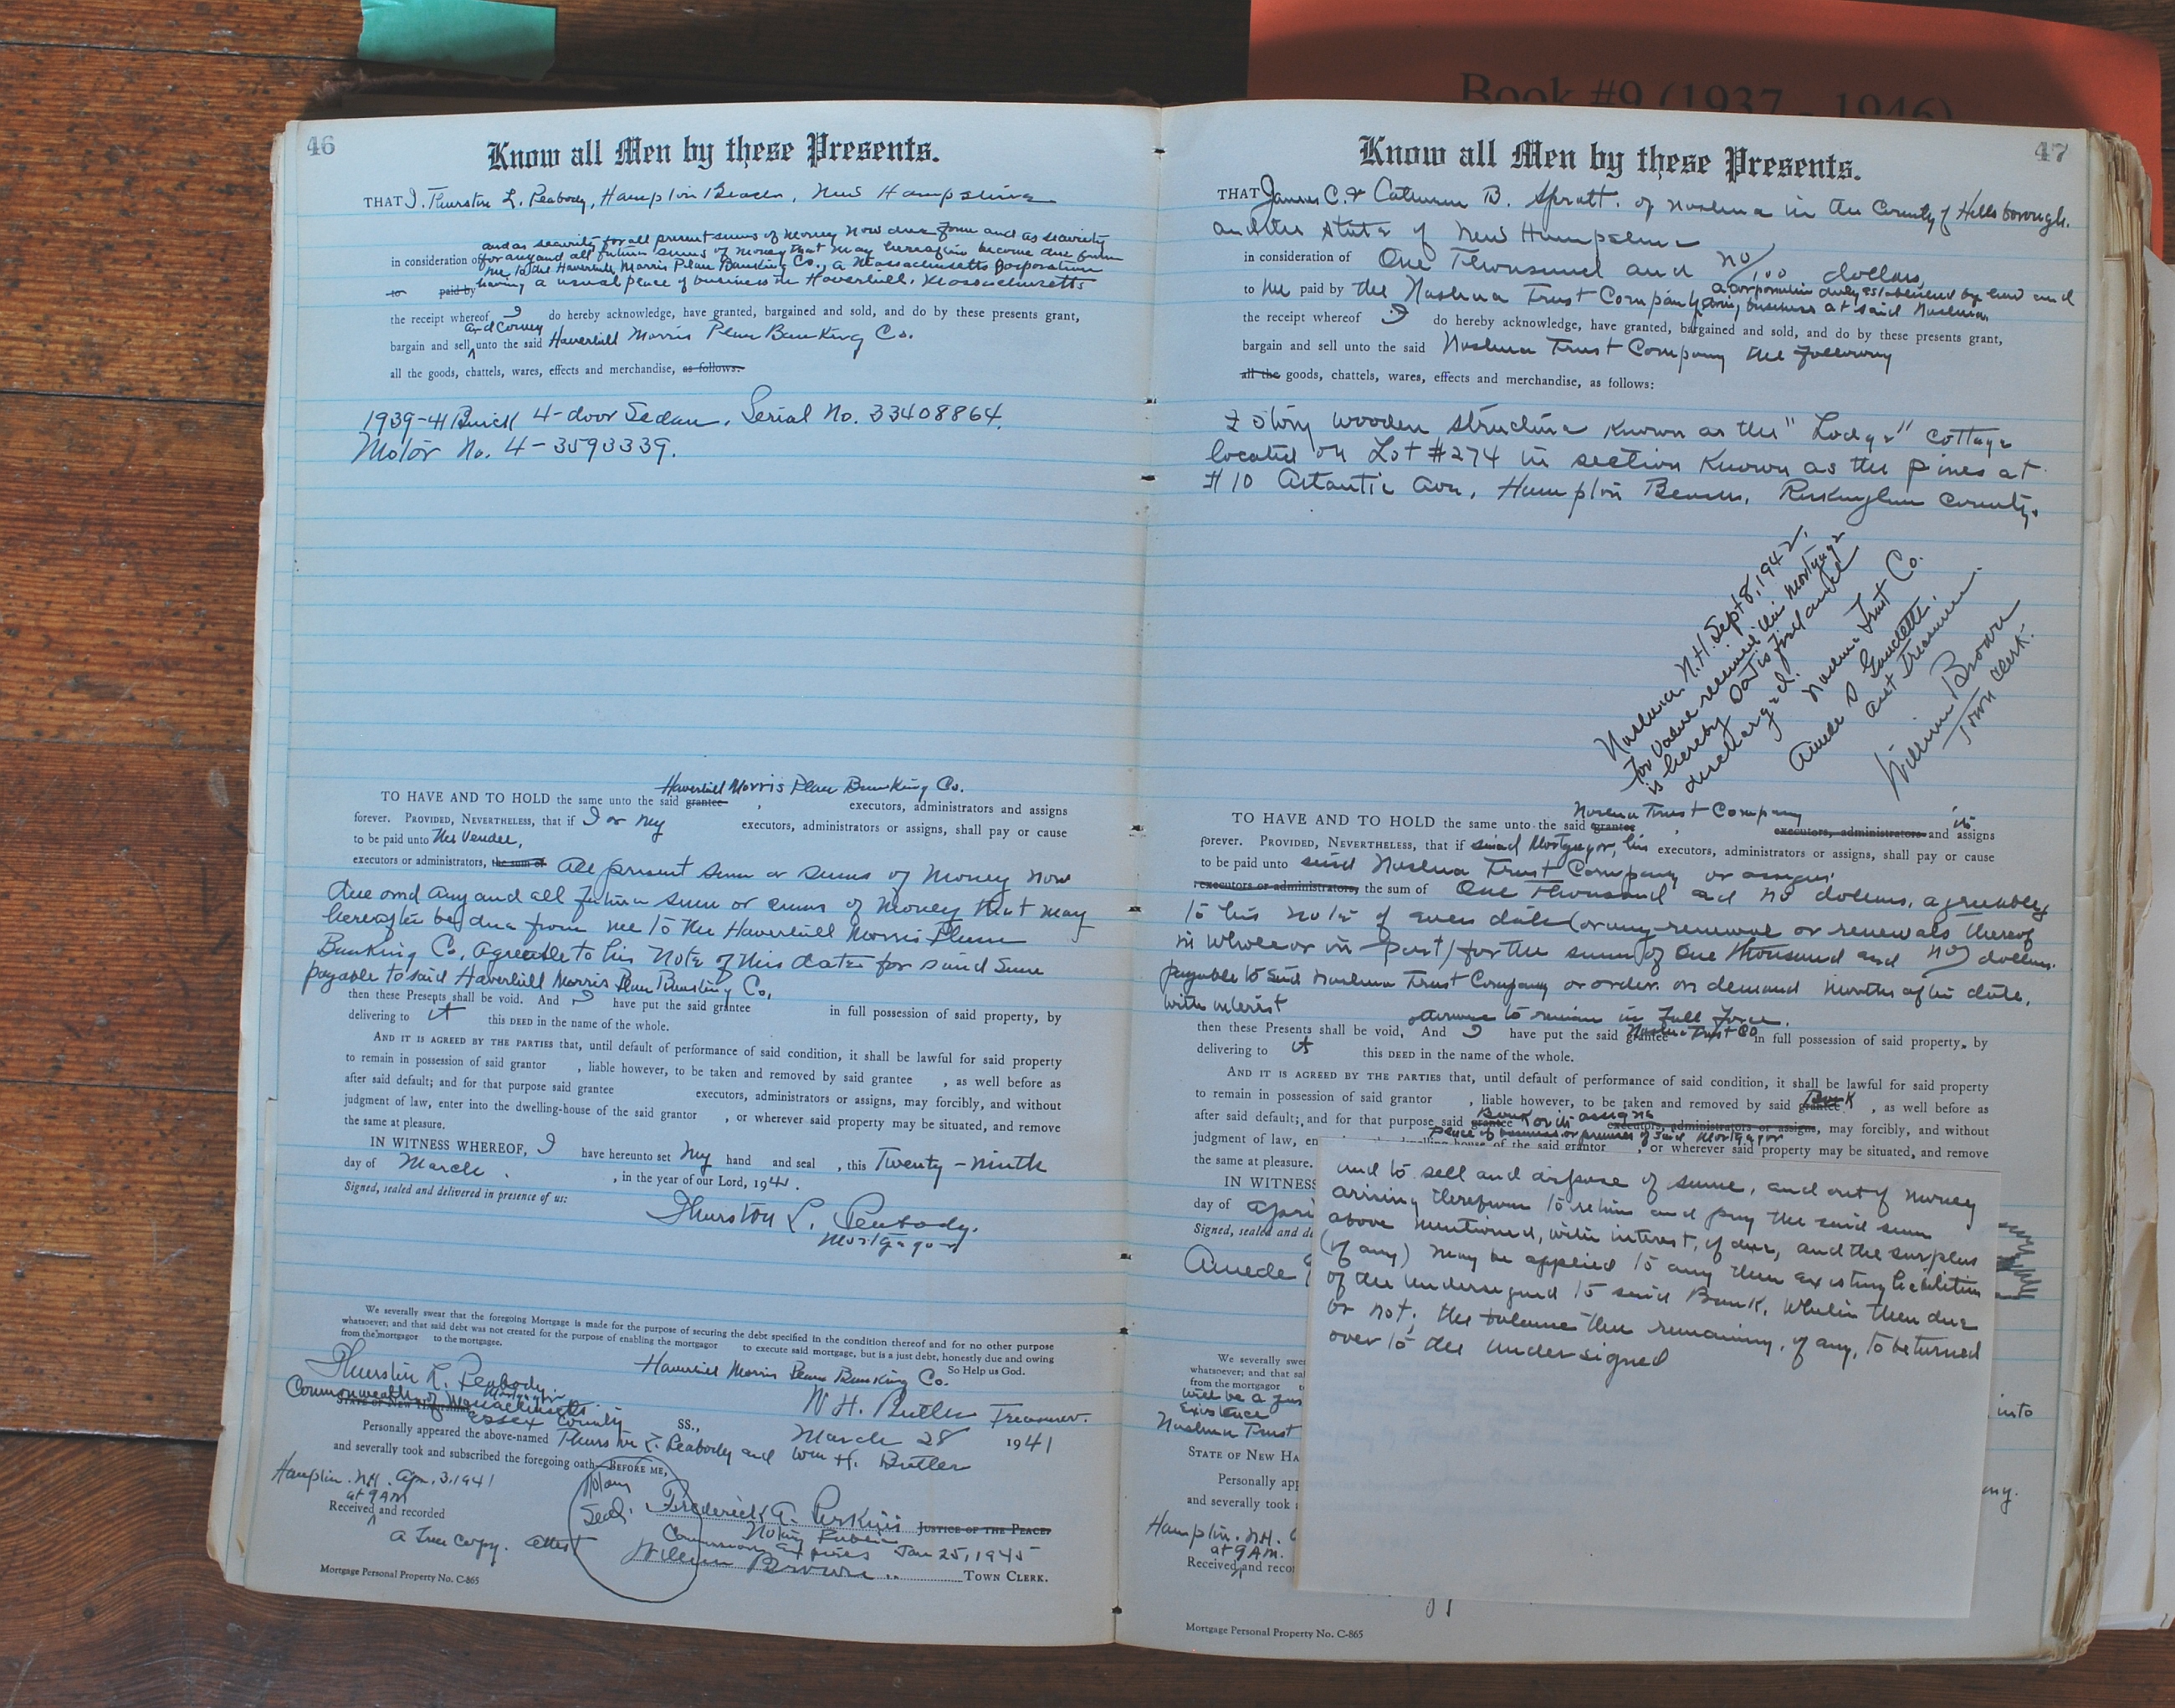 Book #9 (1937 - 1946)
46
Know all Men by these Presents.
THAT I, Thurston L. Peabody, Hampton Beach, New Hampshire
and as security for all present sums of money now due from and as security
in consideration of for any and all future sums of money that may hereafter become due from
me to the Haverhill Morris Plan Banking Co., a Massachusetts Corporation
to paid by having a usual place of business in Haverhill, Massachusetts
the receipt whereof I do hereby acknowledge, have granted, bargained and sold, and do by these presents grant,
and convey
bargain and sell unto the said Haverhill Morris Plan Banking Co.
all the goods, chattels, wares, effects and merchandise, as follows:
1939-41 Buick 4-door Sedan, Serial No. 33408864.
Motor No. 4-3593339.
Haverhill Morris Plan Banking Co.
TO HAVE AND TO HOLD the same unto the said grantee , executors, administrators and assigns
forever. PROVIDED, NEVERTHELESS, that if I or my executors, administrators or assigns, shall pay or cause
to be paid unto the Vendee,
executors or administrators, the sum of All present sum or sums of money now
due and any and all future sum or sums of money that may
hereafter be due from me to the Haverhill Morris Plan
Banking Co. agreeable to his Note of this date for said Sum
payable to said Haverhill Morris Plan Banking Co.
then these Presents shall be void. And I have put the said grantee in full possession of said property, by
delivering to it this DEED in the name of the whole.
AND IT IS AGREED BY THE PARTIES that, until default of performance of said condition, it shall be lawful for said property
to remain in possession of said grantor , liable however, to be taken and removed by said grantee , as well before as
after said default; and for that purpose said grantee executors, administrators or assigns, may forcibly, and without
judgment of law, enter into the dwelling-house of the said grantor , or wherever said property may be situated, and remove
the same at pleasure.
IN WITNESS WHEREOF, I have hereunto set my hand and seal , this Twenty-ninth
day of March , in the year of our Lord, 1941.
Signed, sealed and delivered in presence of us:
Thurston L. Peabody.
Mortgagor
We severally swear that the foregoing Mortgage is made for the purpose of securing the debt specified in the condition thereof and for no other purpose
whatsoever; and that said debt was not created for the purpose of enabling the mortgagor to execute said mortgage, but is a just debt, honestly due and owing
from the mortgagor to the mortgagee. So Help us God.
Haverhill Morris Plan Banking Co.
Thurston L. Peabody
Mortgagor
W. H. Butler Treasurer.
Commonwealth of Massachusetts
STATE OF NEW HAMPSHIRE
Essex County SS., March 28 1941
Personally appeared the above-named Thurston L. Peabody and Wm H. Butler
and severally took and subscribed the foregoing oath—BEFORE ME,
Hampton. N.H. Apr. 3. 1941
at 9 AM
Received and recorded
Notary
Seal.
Frederick G. Perkins JUSTICE OF THE PEACE.
Notary Public
Commission Expires Jan 25, 1945
A true copy. Attest William Brown TOWN CLERK.
Mortgage Personal Property No. C-865
47
Know all Men by these Presents.
THAT James C. & Catherine B. Spratt. of Nashua in the County of Hillsborough.
and the State of New Hampshire
in consideration of One Thousand and no/100 dollars
a corporation duly established by law and
to me paid by the Nashua Trust Company doing business at said Nashua
the receipt whereof I do hereby acknowledge, have granted, bargained and sold, and do by these presents grant,
bargain and sell unto the said Nashua Trust Company the following
all the goods, chattels, wares, effects and merchandise, as follows:
2 story wooden structure known as the "Lodge" cottage
located on Lot #274 in section known as the pines at
#10 Atlantic Ave, Hampton Beach, Rockingham County.
Nashua N.H. Sept 8, 1942.
For value received this mortgage
is hereby satisfied and
discharged.
Nashua Trust Co.
Amede D Gaudette.
asst Treasurer.
William Brown
Town Clerk.
Nashua Trust Company
TO HAVE AND TO HOLD the same unto the said grantee , executors, administrators and its assigns
forever. PROVIDED, NEVERTHELESS, that if said Mortgagor, his executors, administrators or assigns, shall pay or cause
to be paid unto said Nashua Trust Company or assigns
executors or administrators, the sum of One thousand and no dollars, agreeably
to his note of even date (or any renewal or renewals thereof
in whole or in part) for the sum of One thousand and no dollars
payable to said Nashua Trust Company or order. on demand months after date,
with interest
otherwise to remain in full force.
then these Presents shall be void, And I have put the said grantee Nashua Trust Co in full possession of said property, by
delivering to it this DEED in the name of the whole.
AND IT IS AGREED BY THE PARTIES that, until default of performance of said condition, it shall be lawful for said property
to remain in possession of said grantor , liable however, to be taken and removed by said grantee Bank , as well before as
after said default; and for that purpose said grantee Bank or its assigns executors, administrators or assigns, may forcibly, and without
place of business or premises of said Mortgagor
judgment of law, en of the said grantor , or wherever said property may be situated, and remove
the same at pleasure.
IN WITNESS
day of Apri
Signed, sealed and de
Amede
and to sell and dispose of same, and out of money
arising therefrom to retain and pay the said sum
above mentioned, with interest, if due, and the surplus
(if any) may be applied to any then existing liabilities
of the undersigned to said Bank, whether then due
or not; the balance then remaining, if any, to be turned
over to the undersigned
We severally swea
whatsoever; and that sa
from the mortgagor
will be a jus
Existence
into
Nashua Trust
STATE OF NEW HA
Personally app
and severally took
ny.
Hampton. N.H.
at 9 AM.
Received and reco
Mortgage Personal Property No. C-865